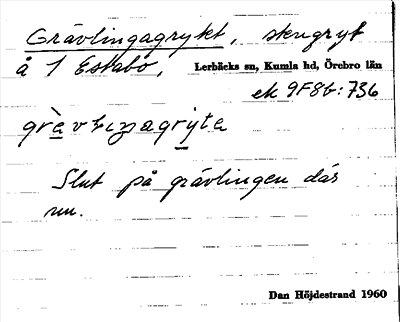 Grävlingagrytet, stengryt
å 1 Estabo, Lerbäcks sn, Kumla hd, Örebro län
ek 9F8b:736
grèvlıŋagrỳtə
Slut på grävlingen där
nu.
Dan Höjdestrand 1960